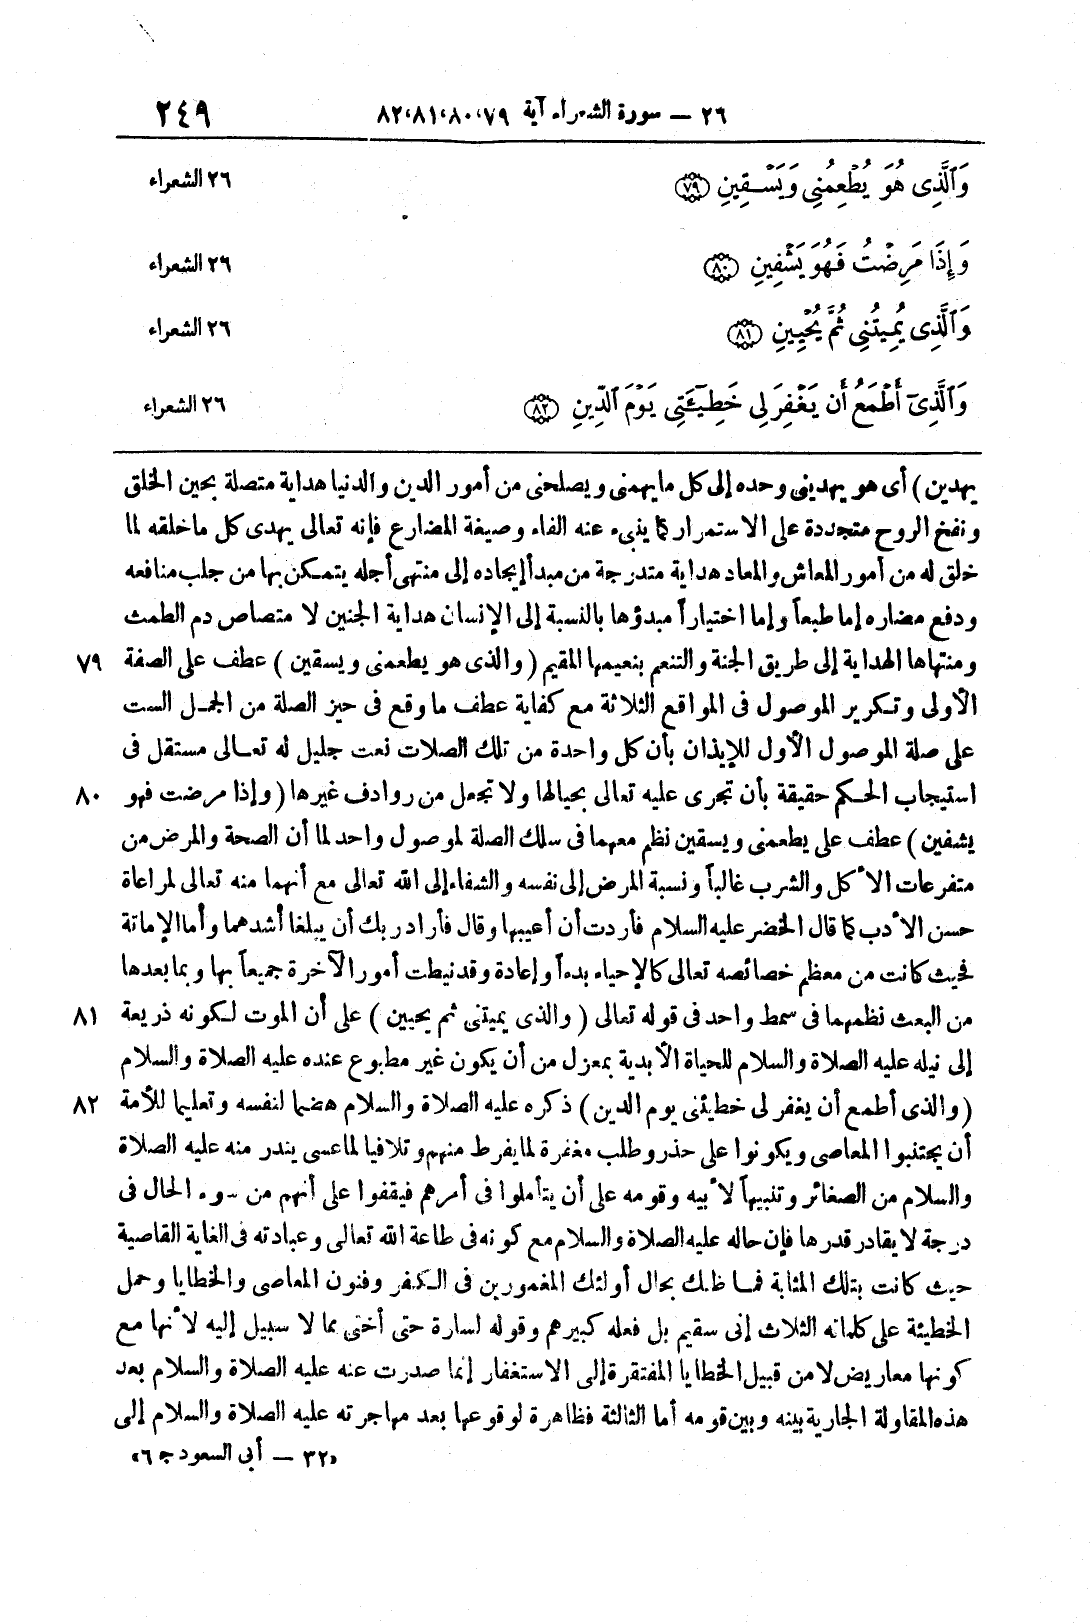 ٢٦ — سورة الشعراء آية ٧٩،٨٠،٨١،٨٢ ٢٤٩
وَٱلَّذِى هُوَ يُطْعِمُنِى وَيَسْقِينِ ﴿٧٩﴾ ٢٦ الشعراء
وَإِذَا مَرِضْتُ فَهُوَ يَشْفِينِ ﴿٨٠﴾ ٢٦ الشعراء
وَٱلَّذِى يُمِيتُنِى ثُمَّ يُحْيِينِ ﴿٨١﴾ ٢٦ الشعراء
وَٱلَّذِىٓ أَطْمَعُ أَن يَغْفِرَ لِى خَطِيٓـَٔتِى يَوْمَ ٱلدِّينِ ﴿٨٢﴾ ٢٦ الشعراء
يهدين) أى هو يهدينى وحده إلى كل ما يهمنى ويصلحنى من أمور الدين والدنيا هداية متصلة بحين الخلق
ونفخ الروح متجددة على الاستمرار كما ينبىء عنه الفاء وصيغة المضارع فإنه تعالى يهدى كل ما خلقه لما
خلق له من أمور المعاش والمعاد هداية متدرجة من مبدأ إيجاده إلى منتهى أجله يتمكن بها من جلب منافعه
ودفع مضاره إما طبعاً وإما اختياراً مبدؤها بالنسبة إلى الإنسان هداية الجنين لامتصاص دم الطمث
ومنتهاها الهداية إلى طريق الجنة والتنعم بنعيمها المقيم (والذى هو يطعمنى ويسقين) عطف على الصفة ٧٩
الأولى وتكرير الموصول فى المواقع الثلاثة مع كفاية عطف ما وقع فى حيز الصلة من الجمل الست
على صلة الموصول الأول للإيذان بأن كل واحدة من تلك الصلات نعت جليل له تعالى مستقل فى
استيجاب الحكم حقيقة بأن تجرى عليه تعالى بحيالها ولا تجعل من روادف غيرها (وإذا مرضت فهو ٨٠
يشفين) عطف على يطعمنى ويسقين نظم معهما فى سلك الصلة لموصول واحد لما أن الصحة والمرض من
متفرعات الأكل والشرب غالباً ونسبة المرض إلى نفسه والشفاء إلى الله تعالى مع أنهما منه تعالى لمراعاة
حسن الأدب كما قال الخضر عليه السلام فأردت أن أعيبها وقال فأراد ربك أن يبلغا أشدهما وأما الإماتة
فحيث كانت من معظم خصائصه تعالى كالإحياء بدءاً وإعادة وقد نيطت أمور الآخرة جميعاً بها وبما بعدها
من البعث نظمهما فى سمط واحد فى قوله تعالى (والذى يميتنى ثم يحيين) على أن الموت لكونه ذريعة ٨١
إلى نيله عليه الصلاة والسلام للحياة الأبدية بمعزل من أن يكون غير مطبوع عنده عليه الصلاة والسلام
(والذى أطمع أن يغفر لى خطيئتى يوم الدين) ذكره عليه الصلاة والسلام هضما لنفسه وتعليما للأمة ٨٢
أن يجتنبوا المعاصى ويكونوا على حذر وطلب مغفرة لما يفرط منهم وتلافيا لما عسى يندر منه عليه الصلاة
والسلام من الصغائر وتنبيهاً لأبيه وقومه على أن يتأملوا فى أمرهم فيقفوا على أنهم من سوء الحال فى
درجة لا يقادر قدرها فإن حاله عليه الصلاة والسلام مع كونه فى طاعة الله تعالى وعبادته فى الغاية القاصية
حيث كانت بتلك المثابة فما ظنك بحال أولئك المغمورين فى الكفر وفنون المعاصى والخطايا وحمل
الخطيئة على كلماته الثلاث إنى سقيم بل فعله كبيرهم وقوله لسارة حتى أختى مما لا سبيل إليه لأنها مع
كونها معاريض لا من قبيل الخطايا المفتقرة إلى الاستغفار إنما صدرت عنه عليه الصلاة والسلام بعد
هذه المقاولة الجارية بينه وبين قومه أما الثالثة فظاهرة لوقوعها بعد مهاجرته عليه الصلاة والسلام إلى
«٣٢ — أبى السعود ج ٦»